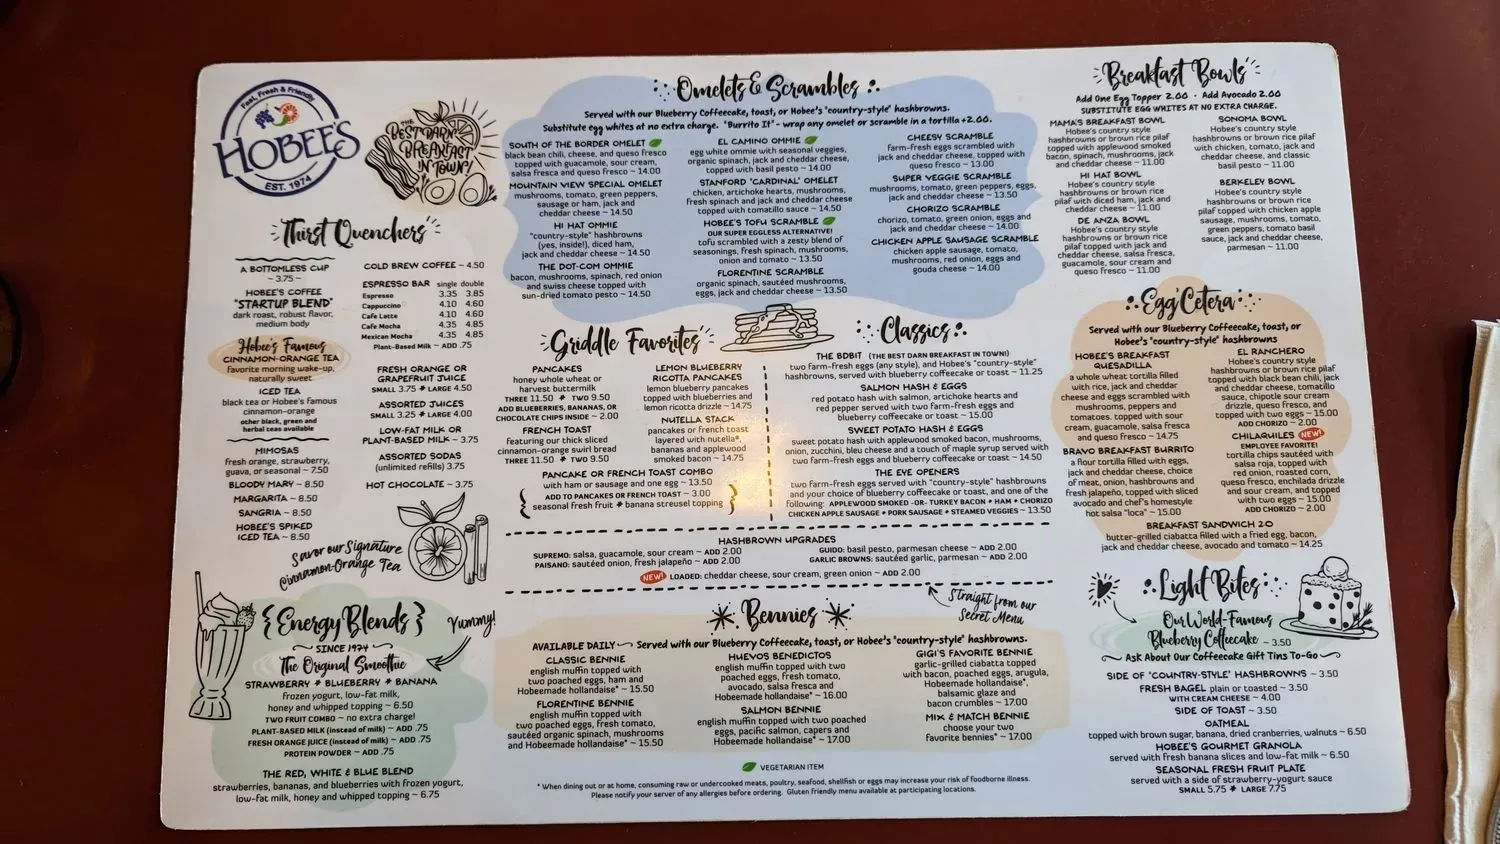 Fast, Fresh & Friendly
HOBEE'S
EST. 1974
THE
BEST DARN
BREAKFAST
IN TOWN!
Thirst Quenchers
A BOTTOMLESS CUP
~ 3.75 ~
HOBEE'S COFFEE
"STARTUP BLEND"
dark roast, robust flavor,
medium body
Hobee's Famous
CINNAMON-ORANGE TEA
favorite morning wake-up,
naturally sweet
ICED TEA
black tea or Hobee's famous
cinnamon-orange
other black, green and
herbal teas available
MIMOSAS
fresh orange, strawberry,
guava, or seasonal ~ 7.50
BLOODY MARY ~ 8.50
MARGARITA ~ 8.50
SANGRIA ~ 8.50
HOBEE'S SPIKED
ICED TEA ~ 8.50
COLD BREW COFFEE ~ 4.50
ESPRESSO BAR single double
Espresso 3.35 3.85
Cappuccino 4.10 4.60
Cafe Latte 4.10 4.60
Cafe Mocha 4.35 4.85
Mexican Mocha 4.35 4.85
Plant-Based Milk ~ ADD .75
FRESH ORANGE OR
GRAPEFRUIT JUICE
SMALL 3.75 * LARGE 4.50
ASSORTED JUICES
SMALL 3.25 * LARGE 4.00
LOW-FAT MILK OR
PLANT-BASED MILK ~ 3.75
ASSORTED SODAS
(unlimited refills) 3.75
HOT CHOCOLATE ~ 3.75
Savor our Signature
Cinnamon-Orange Tea
{Energy Blends}
~ SINCE 1974 ~
Yummy!
The Original Smoothie
STRAWBERRY * BLUEBERRY * BANANA
frozen yogurt, low-fat milk,
honey and whipped topping ~ 6.50
TWO FRUIT COMBO ~ no extra charge!
PLANT-BASED MILK (instead of milk) ~ ADD .75
FRESH ORANGE JUICE (instead of milk) ~ ADD .75
PROTEIN POWDER ~ ADD .75
THE RED, WHITE & BLUE BLEND
strawberries, bananas, and blueberries with frozen yogurt,
low-fat milk, honey and whipped topping ~ 6.75
Omelets & Scrambles
Served with our Blueberry Coffeecake, toast, or Hobee's "country-style" hashbrowns.
Substitute egg whites at no extra charge. "Burrito It" - wrap any omelet or scramble in a tortilla +2.00.
SOUTH OF THE BORDER OMELET
black bean chili, cheese, and queso fresco
topped with guacamole, sour cream,
salsa fresca and queso fresco ~ 14.00
MOUNTAIN VIEW SPECIAL OMELET
mushrooms, tomato, green peppers,
sausage or ham, jack and
cheddar cheese ~ 14.50
HI HAT OMMIE
"country-style" hashbrowns
(yes, inside!), diced ham,
jack and cheddar cheese ~ 14.50
THE DOT-COM OMMIE
bacon, mushrooms, spinach, red onion
and swiss cheese topped with
sun-dried tomato pesto ~ 14.50
EL CAMINO OMMIE
egg white ommie with seasonal veggies,
organic spinach, jack and cheddar cheese,
topped with basil pesto ~ 14.00
STANFORD 'CARDINAL' OMELET
chicken, artichoke hearts, mushrooms,
fresh spinach and jack and cheddar cheese
topped with tomatillo sauce ~ 14.50
HOBEE'S TOFU SCRAMBLE
OUR SUPER EGGLESS ALTERNATIVE!
tofu scrambled with a zesty blend of
seasonings, fresh spinach, mushrooms,
onion and tomato ~ 13.50
FLORENTINE SCRAMBLE
organic spinach, sautéed mushrooms,
eggs, jack and cheddar cheese ~ 13.50
CHEESY SCRAMBLE
farm-fresh eggs scrambled with
jack and cheddar cheese, topped with
queso fresco ~ 13.00
SUPER VEGGIE SCRAMBLE
mushrooms, tomato, green peppers, eggs,
jack and cheddar cheese ~ 13.50
CHORIZO SCRAMBLE
chorizo, tomato, green onion, eggs and
jack and cheddar cheese ~ 14.00
CHICKEN APPLE SAUSAGE SCRAMBLE
chicken apple sausage, tomato,
mushrooms, red onion, eggs and
gouda cheese ~ 14.00
Griddle Favorites
PANCAKES
honey whole wheat or
harvest buttermilk
THREE 11.50 * TWO 9.50
ADD BLUEBERRIES, BANANAS, OR
CHOCOLATE CHIPS INSIDE ~ 2.00
FRENCH TOAST
featuring our thick sliced
cinnamon-orange swirl bread
THREE 11.50 * TWO 9.50
LEMON BLUEBERRY
RICOTTA PANCAKES
lemon blueberry pancakes
topped with blueberries and
lemon ricotta drizzle ~ 14.75
NUTELLA STACK
pancakes or french toast
layered with nutella®,
bananas and applewood
smoked bacon ~ 14.75
PANCAKE OR FRENCH TOAST COMBO
with ham or sausage and one egg ~ 13.50
ADD TO PANCAKES OR FRENCH TOAST ~ 3.00
seasonal fresh fruit * banana streusel topping
Classics
THE BDBIT (THE BEST DARN BREAKFAST IN TOWN!)
two farm-fresh eggs (any style), and Hobee's "country-style"
hashbrowns, served with blueberry coffeecake or toast ~ 11.25
SALMON HASH & EGGS
red potato hash with salmon, artichoke hearts and
red pepper served with two farm-fresh eggs and
blueberry coffeecake or toast ~ 15.00
SWEET POTATO HASH & EGGS
sweet potato hash with applewood smoked bacon, mushrooms,
onion, zucchini, bleu cheese and a touch of maple syrup served with
two farm-fresh eggs and blueberry coffeecake or toast ~ 14.50
THE EYE OPENERS
two farm-fresh eggs served with "country-style" hashbrowns
and your choice of blueberry coffeecake or toast, and one of the
following: APPLEWOOD SMOKED -OR- TURKEY BACON * HAM * CHORIZO
CHICKEN APPLE SAUSAGE * PORK SAUSAGE * STEAMED VEGGIES ~ 13.50
HASHBROWN UPGRADES
SUPREMO: salsa, guacamole, sour cream ~ ADD 2.00
PAISANO: sautéed onion, fresh jalapeño ~ ADD 2.00
GUIDO: basil pesto, parmesan cheese ~ ADD 2.00
GARLIC BROWNS: sautéed garlic, parmesan ~ ADD 2.00
NEW! LOADED: cheddar cheese, sour cream, green onion ~ ADD 2.00
Straight from our
Secret Menu
Bennies
AVAILABLE DAILY ~ Served with our Blueberry Coffeecake, toast, or Hobee's "country-style" hashbrowns.
CLASSIC BENNIE
english muffin topped with
two poached eggs, ham and
Hobeemade hollandaise* ~ 15.50
FLORENTINE BENNIE
english muffin topped with
two poached eggs, fresh tomato,
sautéed organic spinach, mushrooms
and Hobeemade hollandaise* ~ 15.50
HUEVOS BENEDICTOS
english muffin topped with two
poached eggs, fresh tomato,
avocado, salsa fresca and
Hobeemade hollandaise* ~ 16.00
SALMON BENNIE
english muffin topped with two poached
eggs, pacific salmon, capers and
Hobeemade hollandaise* ~ 17.00
GIGI'S FAVORITE BENNIE
garlic-grilled ciabatta topped
with bacon, poached eggs, arugula,
Hobeemade hollandaise*,
balsamic glaze and
bacon crumbles ~ 17.00
MIX & MATCH BENNIE
choose your two
favorite bennies* ~ 17.00
VEGETARIAN ITEM
* When dining out or at home, consuming raw or undercooked meats, poultry, seafood, shellfish or eggs may increase your risk of foodborne illness.
Please notify your server of any allergies before ordering. Gluten friendly menu available at participating locations.
Breakfast Bowls
Add One Egg Topper 2.00 · Add Avocado 2.00
SUBSTITUTE EGG WHITES AT NO EXTRA CHARGE.
MAMA'S BREAKFAST BOWL
Hobee's country style
hashbrowns or brown rice pilaf
topped with applewood smoked
bacon, spinach, mushrooms, jack
and cheddar cheese ~ 11.00
HI HAT BOWL
Hobee's country style
hashbrowns or brown rice
pilaf with diced ham, jack and
cheddar cheese ~ 11.00
DE ANZA BOWL
Hobee's country style
hashbrowns or brown rice
pilaf topped with jack and
cheddar cheese, salsa fresca,
guacamole, sour cream and
queso fresco ~ 11.00
SONOMA BOWL
Hobee's country style
hashbrowns or brown rice pilaf
with chicken, tomato, jack and
cheddar cheese, and classic
basil pesto ~ 11.00
BERKELEY BOWL
Hobee's country style
hashbrowns or brown rice
pilaf topped with chicken apple
sausage, mushrooms, tomato,
green peppers, tomato basil
sauce, jack and cheddar cheese,
parmesan ~ 11.00
Egg'Cetera
Served with our Blueberry Coffeecake, toast, or
Hobee's "country-style" hashbrowns
HOBEE'S BREAKFAST
QUESADILLA
a whole wheat tortilla filled
with rice, jack and cheddar
cheese and eggs scrambled with
mushrooms, peppers and
tomatoes. topped with sour
cream, guacamole, salsa fresca
and queso fresco ~ 14.75
BRAVO BREAKFAST BURRITO
a flour tortilla filled with eggs,
jack and cheddar cheese, choice
of meat, onion, hashbrowns and
fresh jalapeño, topped with sliced
avocado and chef's homestyle
hot salsa "loca" ~ 15.00
EL RANCHERO
hashbrowns or brown rice pilaf
topped with black bean chili, jack
and cheddar cheese, tomatillo
sauce, chipotle sour cream
drizzle, queso fresco, and
topped with two eggs ~ 15.00
ADD CHORIZO ~ 2.00
CHILAQUILES NEW!
EMPLOYEE FAVORITE!
tortilla chips sautéed with
salsa roja, topped with
red onion, roasted corn,
queso fresco, enchilada drizzle
and sour cream, and topped
with two eggs ~ 15.00
ADD CHORIZO ~ 2.00
BREAKFAST SANDWICH 2.0
butter-grilled ciabatta filled with a fried egg, bacon,
jack and cheddar cheese, avocado and tomato ~ 14.25
Light Bites
Our World-Famous
Blueberry Coffeecake ~ 3.50
Ask About Our Coffeecake Gift Tins To-Go
SIDE OF "COUNTRY-STYLE" HASHBROWNS ~ 3.50
FRESH BAGEL plain or toasted ~ 3.50
WITH CREAM CHEESE ~ 4.00
SIDE OF TOAST ~ 3.50
OATMEAL
topped with brown sugar, banana, dried cranberries, walnuts ~ 6.50
HOBEE'S GOURMET GRANOLA
served with fresh banana slices and low-fat milk ~ 6.50
SEASONAL FRESH FRUIT PLATE
served with a side of strawberry-yogurt sauce
SMALL 5.75 * LARGE 7.75